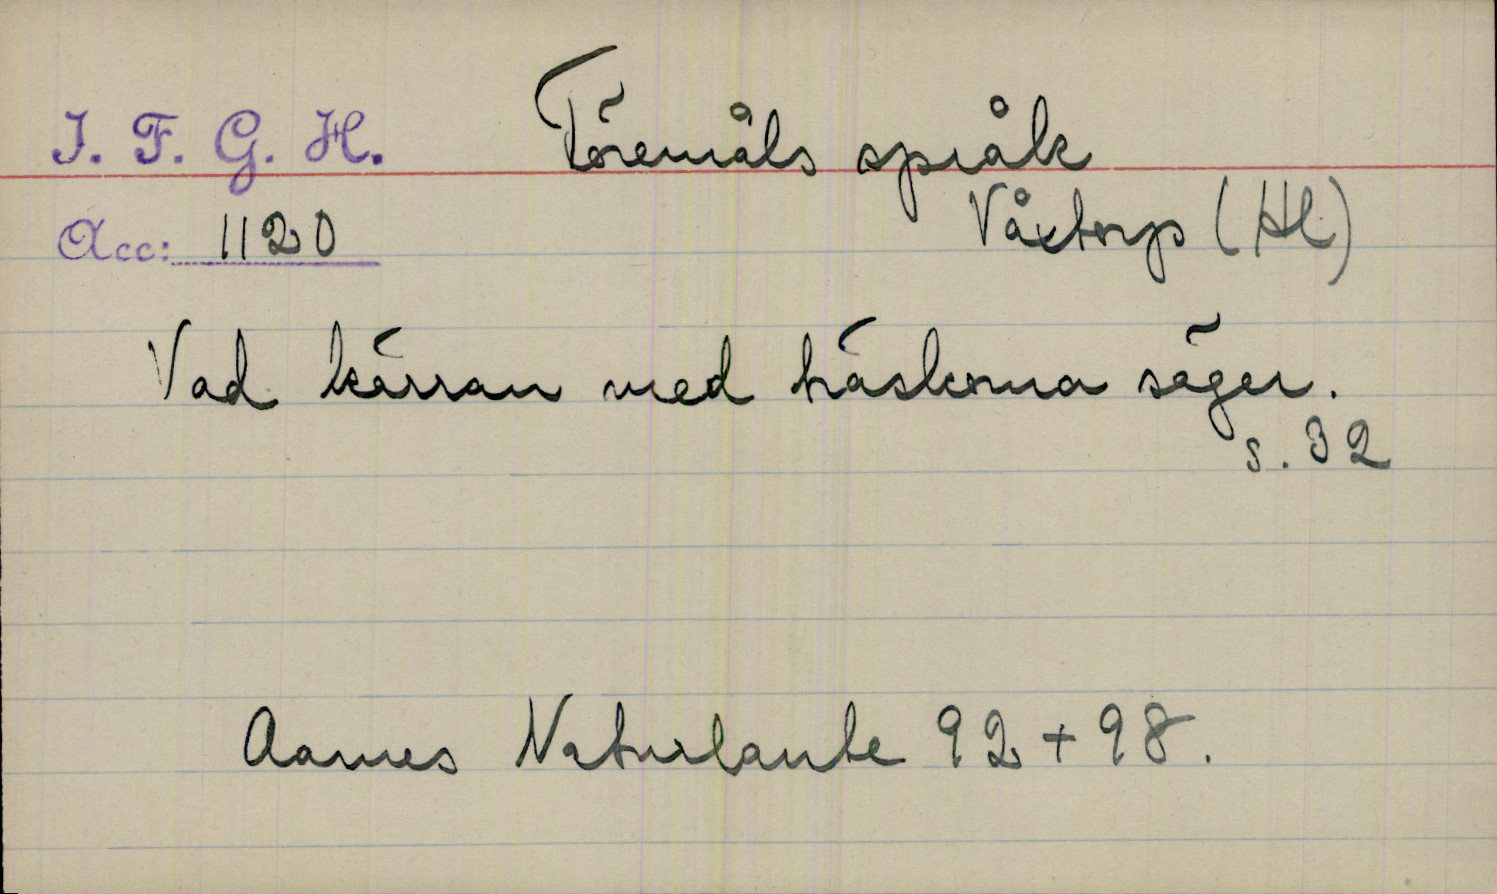 I. F. G. H.
Föremåls språk
Acc: 1120
Våxtorp (Hl)
Vad kärran med träskorna säger.
s. 32
Aarnes Naturlaute 92 + 98.